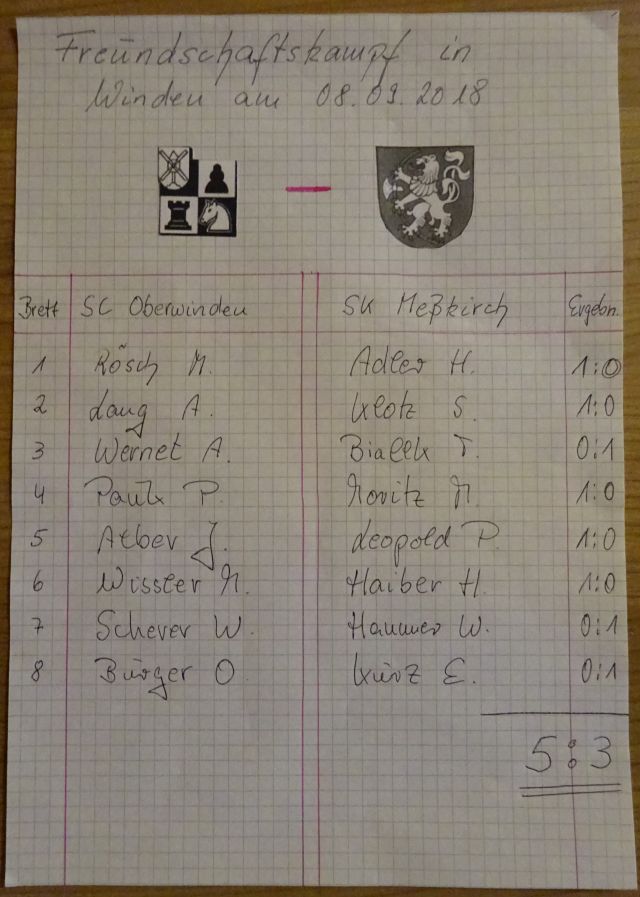 Freundschaftskampf in
Winden am 08.09.2018
Brett SC Oberwinden SK Meßkirch Ergebn.
1 Rösch M. Adler H. 1:0
2 Lang A. Klotz S. 1:0
3 Wernet A. Bialek T. 0:1
4 P. Moritz M. 1:0
5 Alber J. Leopold P. 1:0
6 Wissler M. Haiber H. 1:0
7 Scherer W. Hammer W. 0:1
8 Burger O. Kurz E. 0:1
5:3